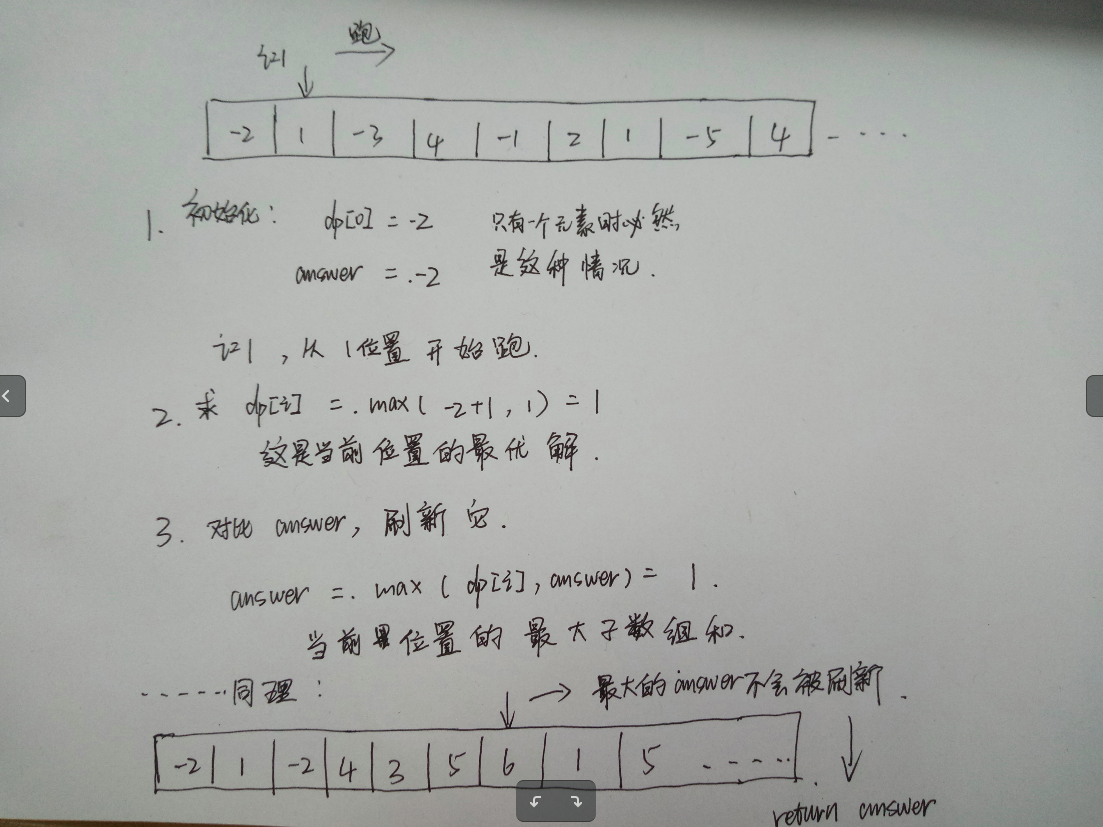 跑
i=1
-2 1 -3 4 -1 2 1 -5 4 -....
1. 初始化: dp[0] = -2 只有一个元素时必然
answer = -2 是这种情况.
i=1, 从1位置开始跑.
2. 求 dp[i] = max( -2+1, 1) = 1
这是当前位置的最优解.
3. 对比 answer, 刷新它.
answer = max ( dp[i], answer) = 1.
当前位置的最大子数组和.
......同理: → 最大的answer不会被刷新.
-2 1 -2 4 3 5 6 1 5 .....
return answer